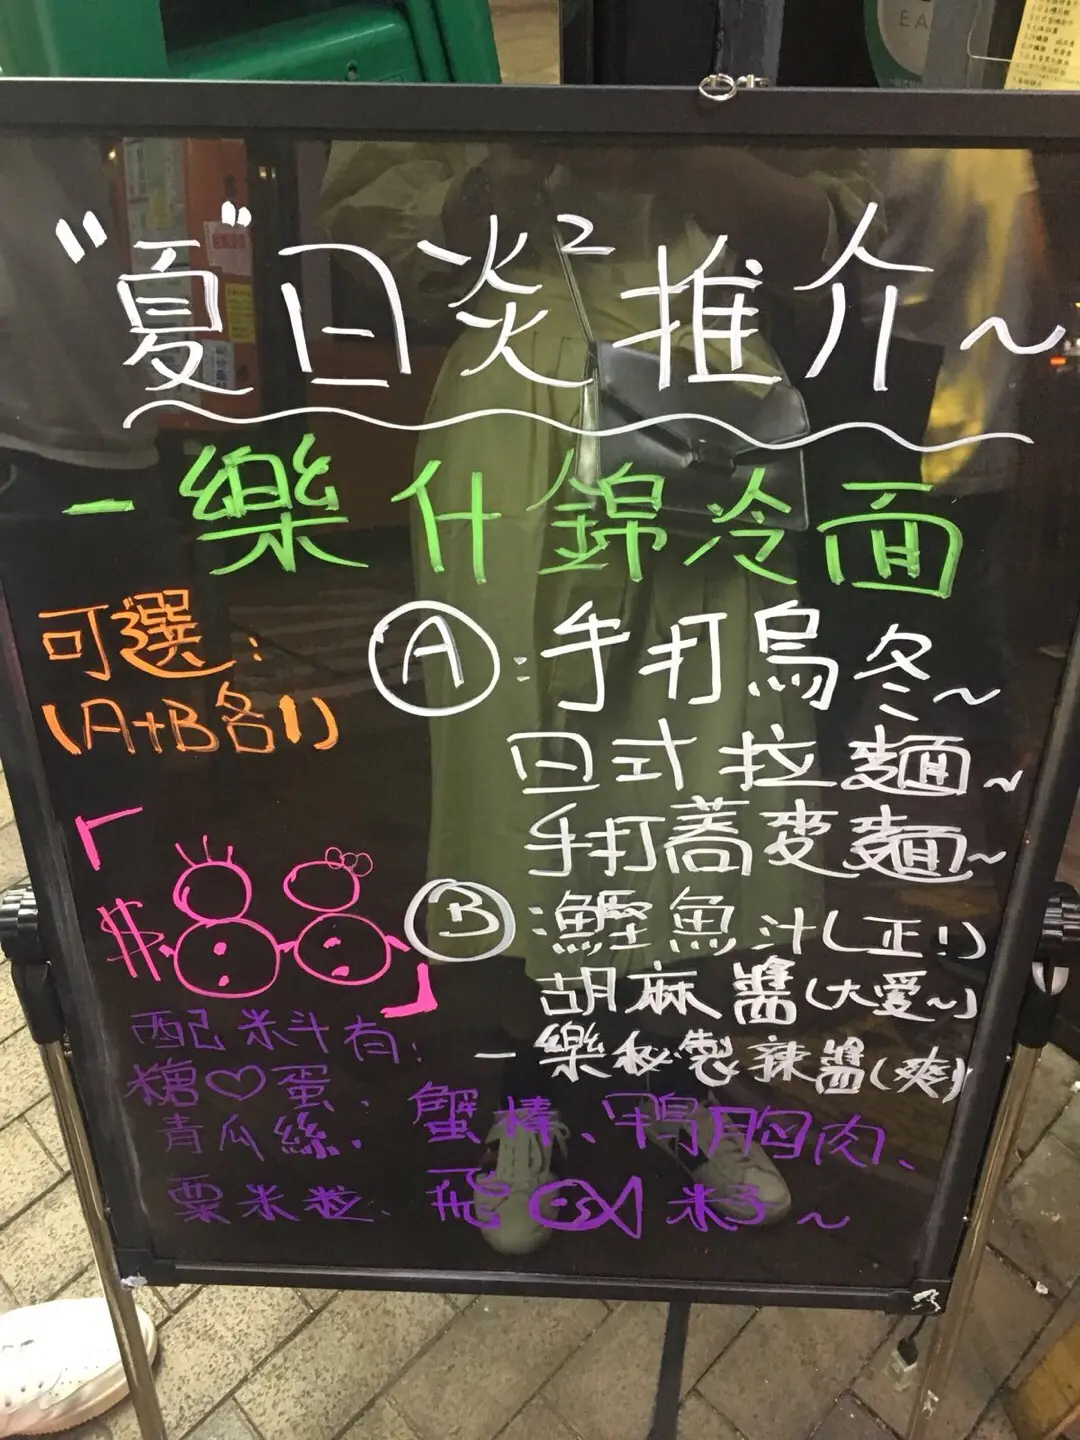 "夏"日炎²推介～
一樂什錦冷面
可選：
(A+B各1)
Ⓐ：手打烏冬～
日式拉麵～
手打蕎麥麵～
Ⓑ：鰹魚汁(正!)
胡麻醬(大愛~)
一樂秘製辣醬(爽)
「$ 」
配料有：
糖♡蛋、蟹棒、鴨胸肉、
青瓜絲、
粟米粒、飛 籽～